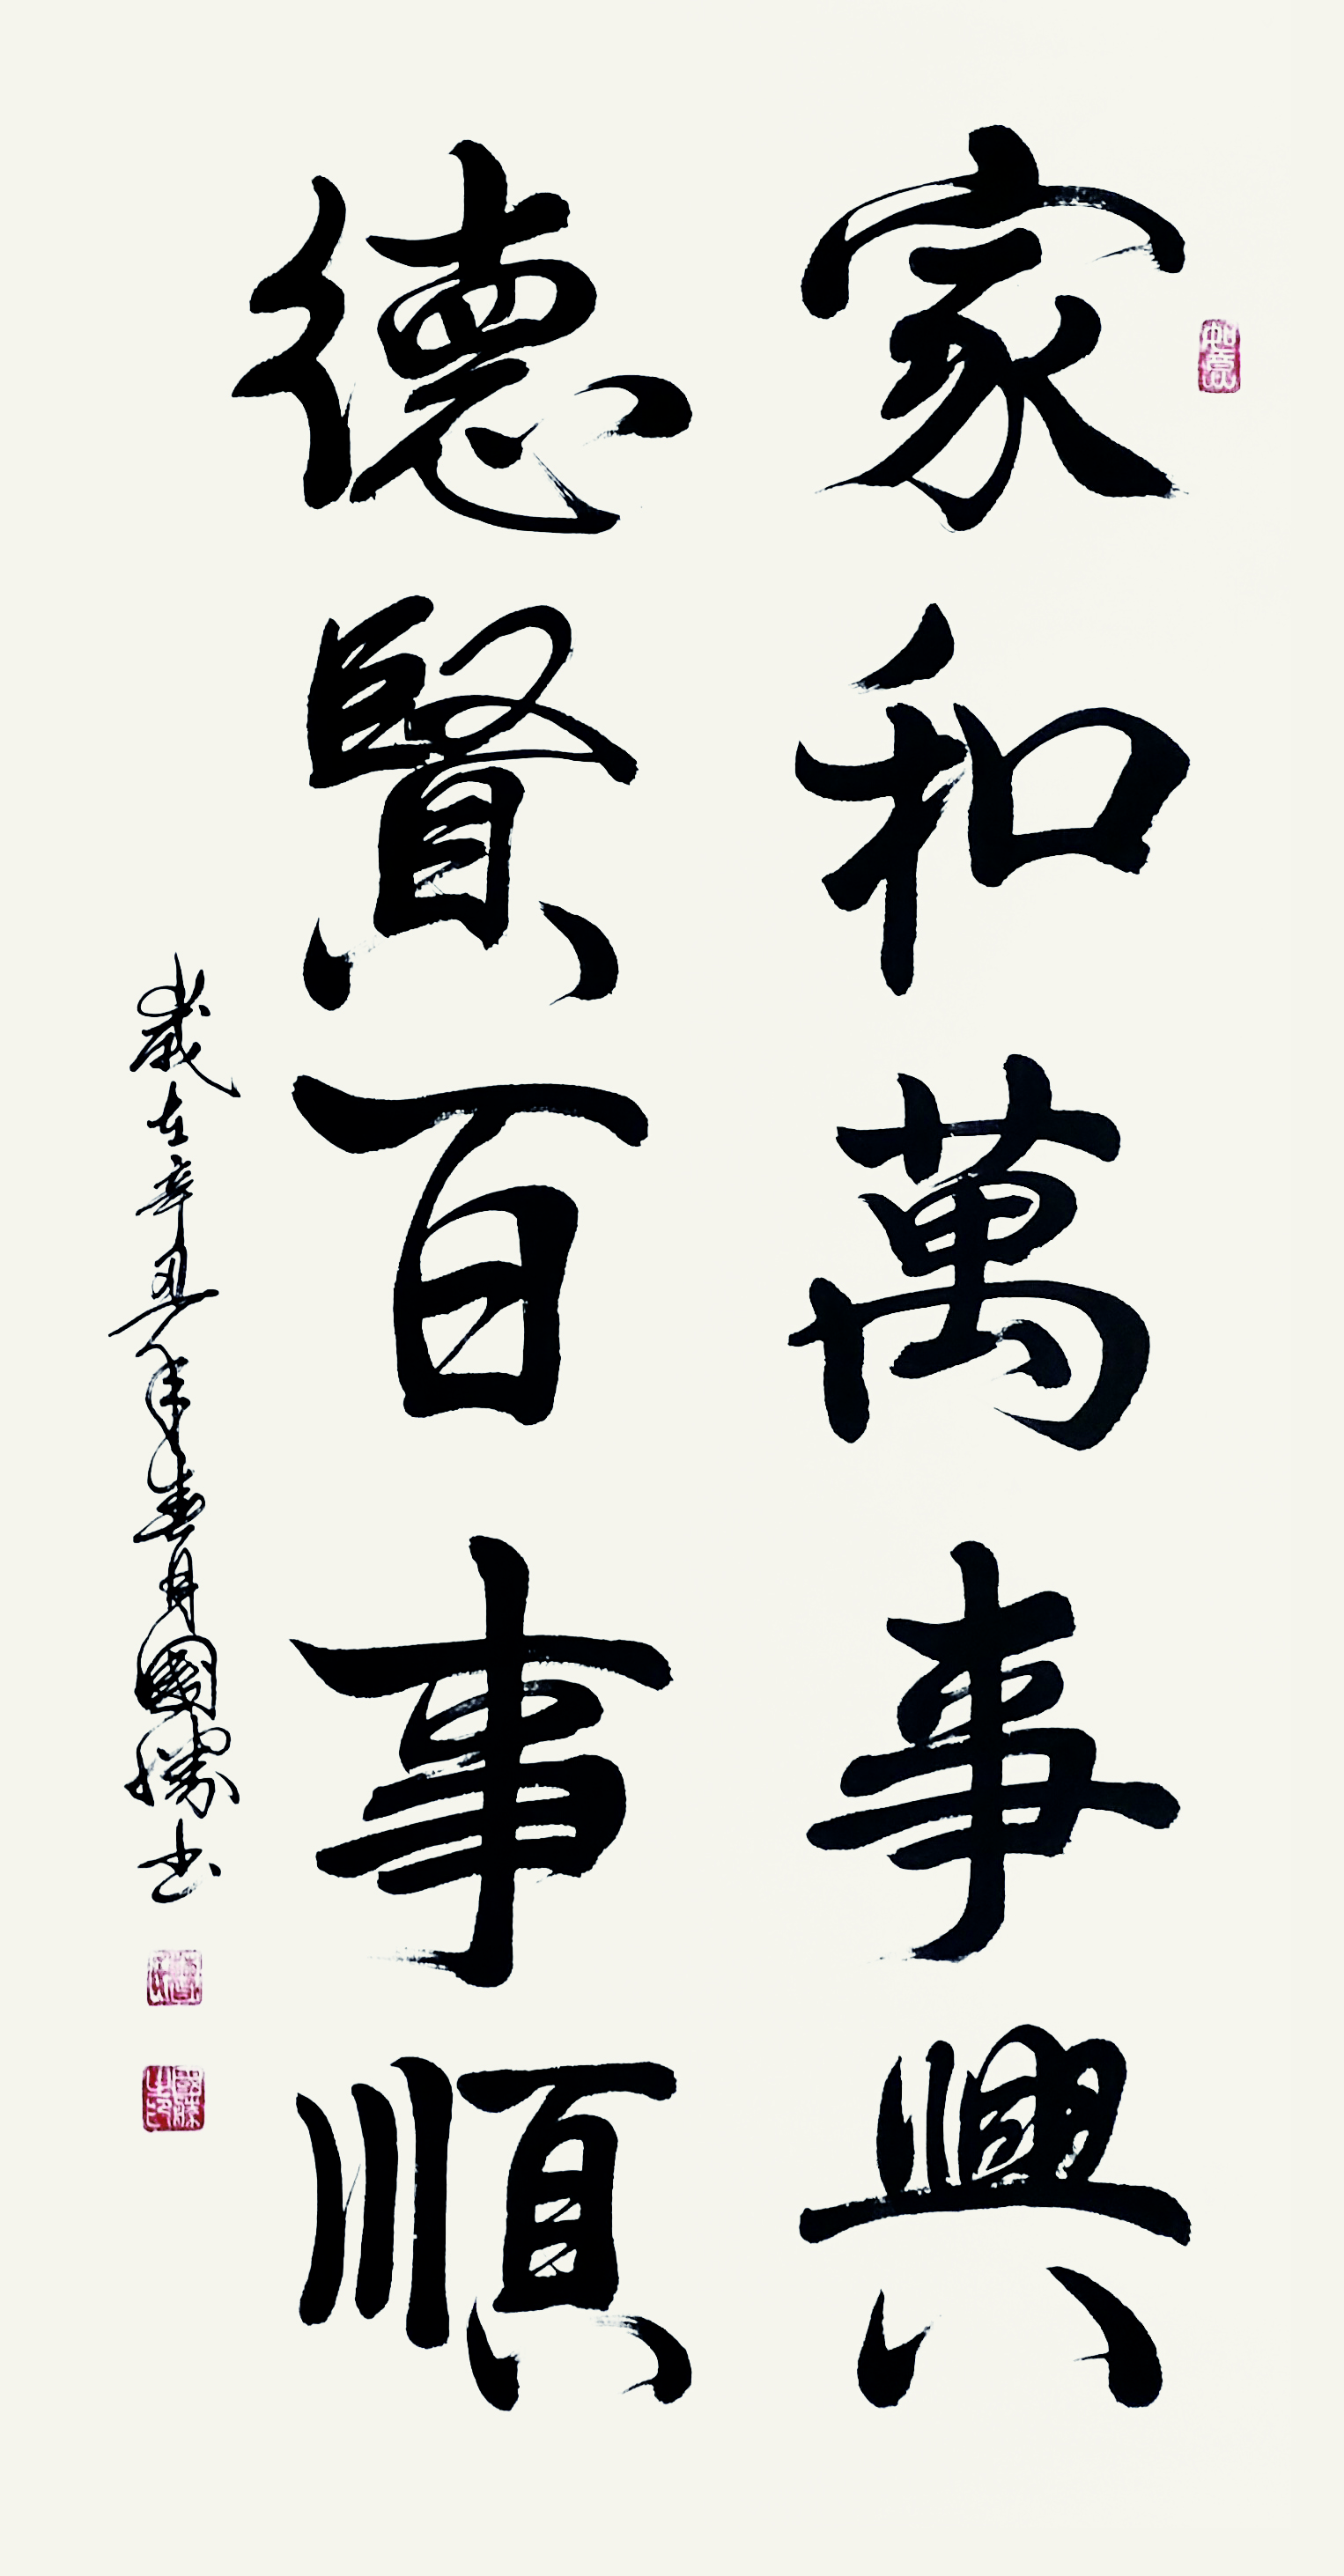 家和萬事興
德賢百事順
歲在辛丑年春月國勝书
如意